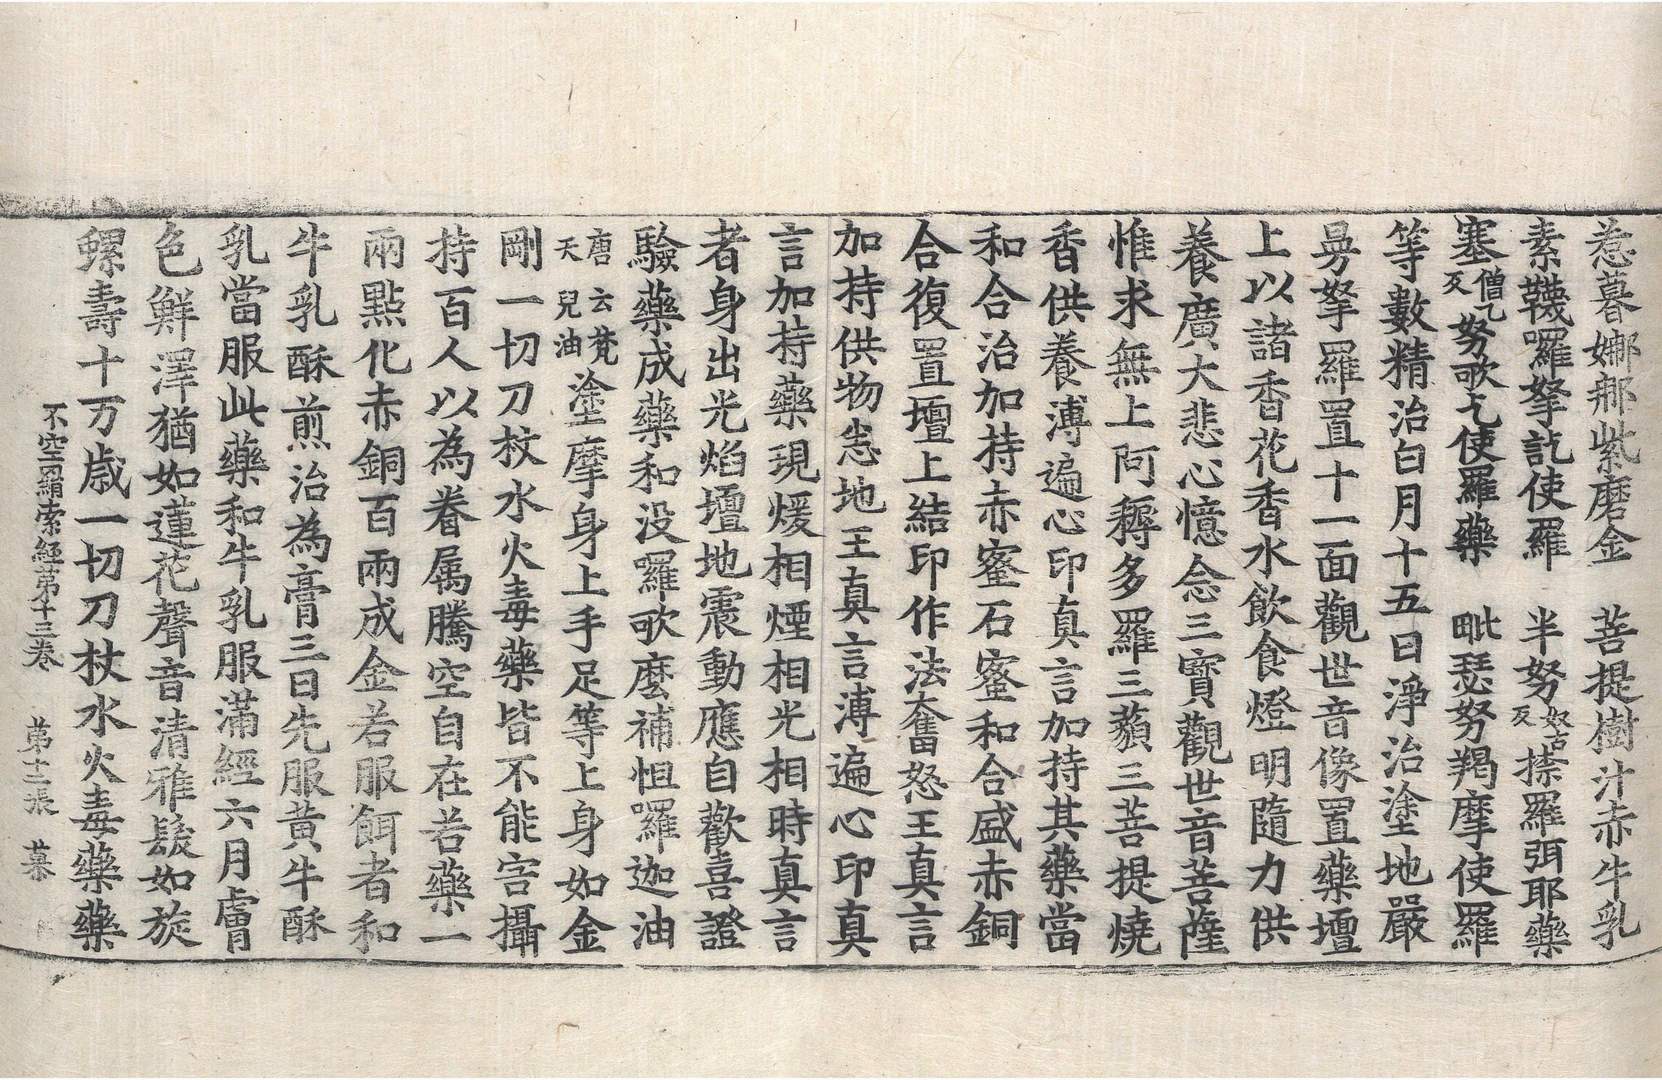 惹暮娜郍紫磨金　菩提樹汁赤牛乳
素韈囉拏訖使羅　半努奴古反捺羅弭耶藥
塞僧乙反努歌乞使羅藥　毗瑟努羯摩使羅
等數精治白月十五日淨治塗地嚴
曼拏羅置十一面觀世音像置藥壇
上以諸香花香水飲食燈明隨力供
養廣大悲心憶念三寶觀世音菩薩
惟求無上阿耨多羅三藐三菩提燒
香供養溥遍心印真言加持其藥當
和合治加持赤蜜石蜜和合盛赤銅
合復置壇上結印作法奮怒王真言
加持供物恙地王真言溥遍心印真
言加持藥現煖相煙相光相時真言
者身出光焰壇地震動應自歡喜證
驗藥成藥和没囉歌麽補怛羅迦油
唐云梵天兒油塗摩身上手足等上身如金
剛一切刀杖水火毒藥皆不能害攝
持百人以為眷属騰空自在若藥一
兩點化赤銅百兩成金若服餌者和
牛乳酥煎治為膏三日先服黃牛酥
乳當服此藥和牛乳服滿經六月膚
色鮮澤猶如蓮花聲音清雅髮如旋
螺壽十万歲一切刀杖水火毒藥藥
不空羂索經第十三卷　第十二張　慕